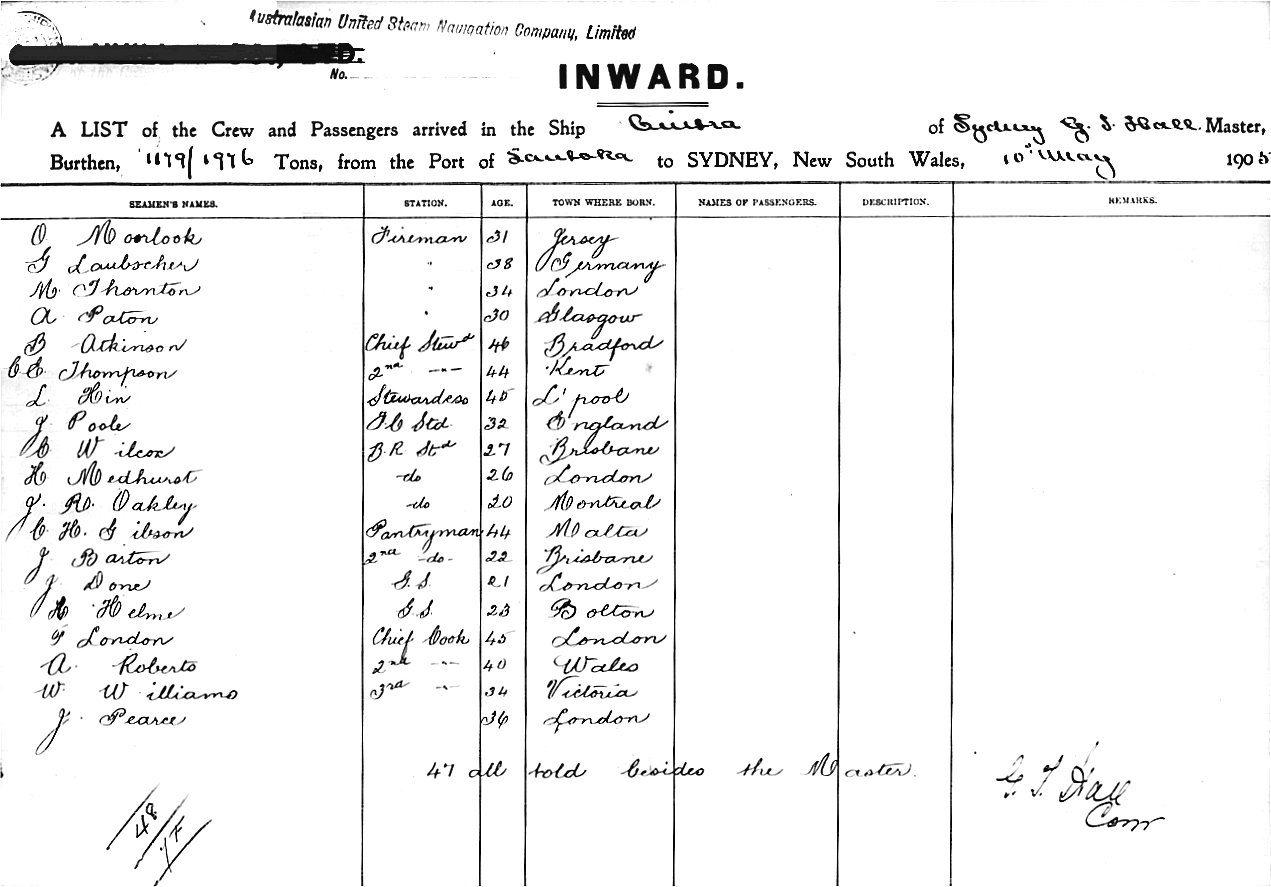 Australasian United Steam Navigation Company, Limited
LTD.
No.
INWARD.
A LIST of the Crew and Passengers arrived in the Ship of Sydney G. T. Hall Master,
Burthen, 1179/1976 Tons, from the Port of Lautoka to SYDNEY, New South Wales, 10th May 1905
SEAMEN'S NAMES. STATION. AGE. TOWN WHERE BORN. NAMES OF PASSENGERS. DESCRIPTION. REMARKS.
O Moorlook Fireman 31 Jersey
G Laubscher " 38 Germany
M Thornton " 34 London
A Paton " 30 Glasgow
B Atkinson Chief Stewd 46 Bradford
C C Thompson 2nd -"- 44 Kent
L Hin Stewardess 45 L'pool
J Poole F.C Std 32 England
C Wilcox B.R. Std 27 Brisbane
H Medhurst -do 26 London
J. R. Oakley -do 20 Montreal
C. H. Gibson Pantryman 44 Malta
J Barton 2nd -do- 22 Brisbane
J Done G.S. 21 London
H Helme G.S. 23 Bolton
F London Chief Cook 45 London
A. Roberts 2nd -"- 40 Wales
W. Williams 3rd -"- 34 Victoria
J. Pearce 36 London
47 all told besides the Master.
G. T. Hall
Com
48